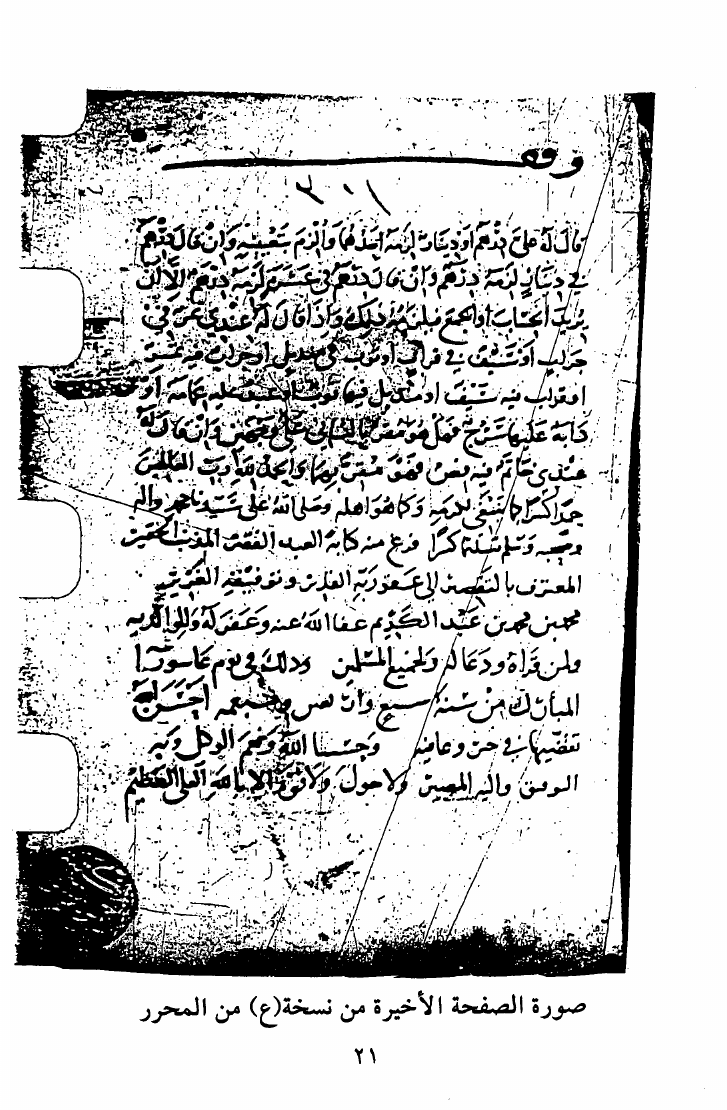 وقف
٣٠١
قال له علي درهم أو دينار لزمه أحدهما وألزم بتعيينه وإن قال درهم
في دينار لزمه درهم وإن قال درهم في عشرة لزمه درهم إلا أن
يريد الحساب أو الجمع فيلزمه ذلك وإذا قال له عندي تمر في
جراب أو سيف في قراب أو ثوب في منديل أو جراب فيه تمر
أو قراب فيه سيف أو منديل فيها ثوب أو عبد عليه عمامة أو
دابة عليها سرج فهل هو مقر بالثاني على وجهين وإن قال له
عندي خاتم فيه فص فهو مقر بهما والحمد لله رب العالمين
حمدا كثيرا كما ينبغي لكرمه وكما هو أهله وصلى الله على سيدنا محمد وآله
وصحبه وسلم تسليما كثيرا فرغ منه كتابة العبد الفقير المذنب الحقير
المعترف بالتقصير إلى عفو ربه القدير وتوفيقه
محمد بن محمد بن عبد الكريم عفا الله عنه وغفر له ولوالديه
ولمن قرأه ودعا له ولجميع المسلمين وذلك في يوم عاشوراء
المبارك من سنة سبع أحسن الله
تقضيها في خير وعافية وحسبنا الله ونعم الوكيل وبه
التوفيق وإليه المصير ولا حول ولا قوة إلا بالله العلي العظيم
صورة الصفحة الأخيرة من نسخة(ع) من المحرر
٢١